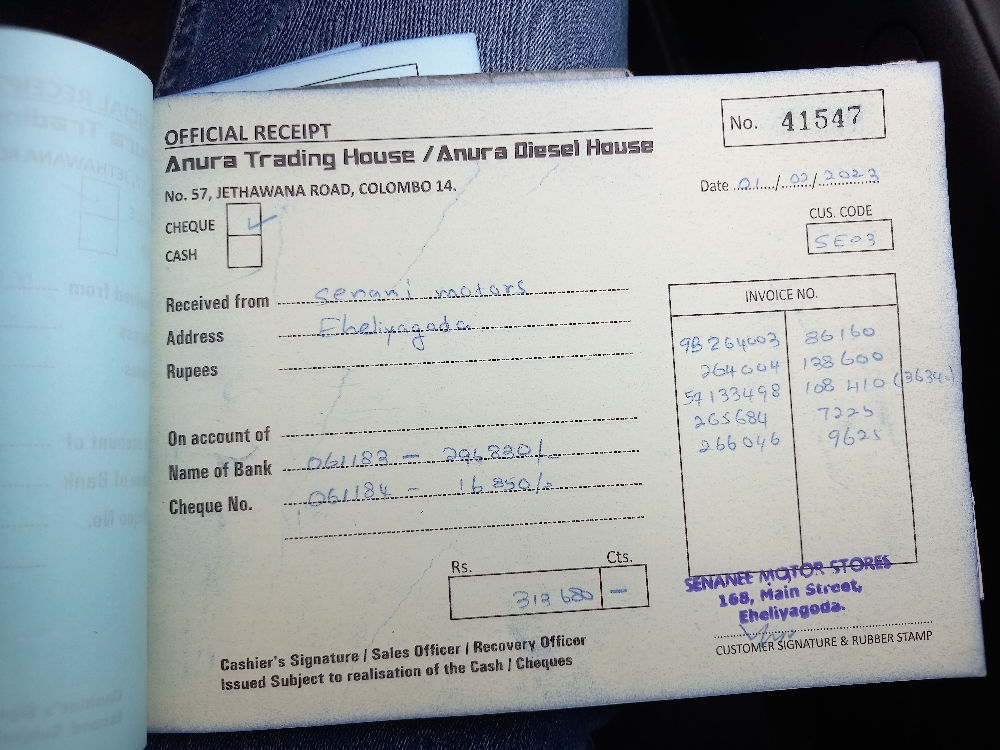 OFFICIAL RECEIPT
No. 41547
Anura Trading House / Anura Diesel House
No. 57, JETHAWANA ROAD, COLOMBO 14.
Date 01/02/2023
CHEQUE ✓
CASH
CUS. CODE
SE03
Received from Senani motors
Address Eheliyagoda
Rupees
On account of
Name of Bank 061183 - 296830/-
Cheque No. 061184 - 16850/-
INVOICE NO.
9B264003 86160
264004 138600
57133498 108410 (3634
265684 7225
266046 9625
Rs. Cts.
313680 -
SENANEE MOTOR STORES
168, Main Street,
Eheliyagoda.
CUSTOMER SIGNATURE & RUBBER STAMP
Cashier's Signature / Sales Officer / Recovery Officer
Issued Subject to realisation of the Cash / Cheques